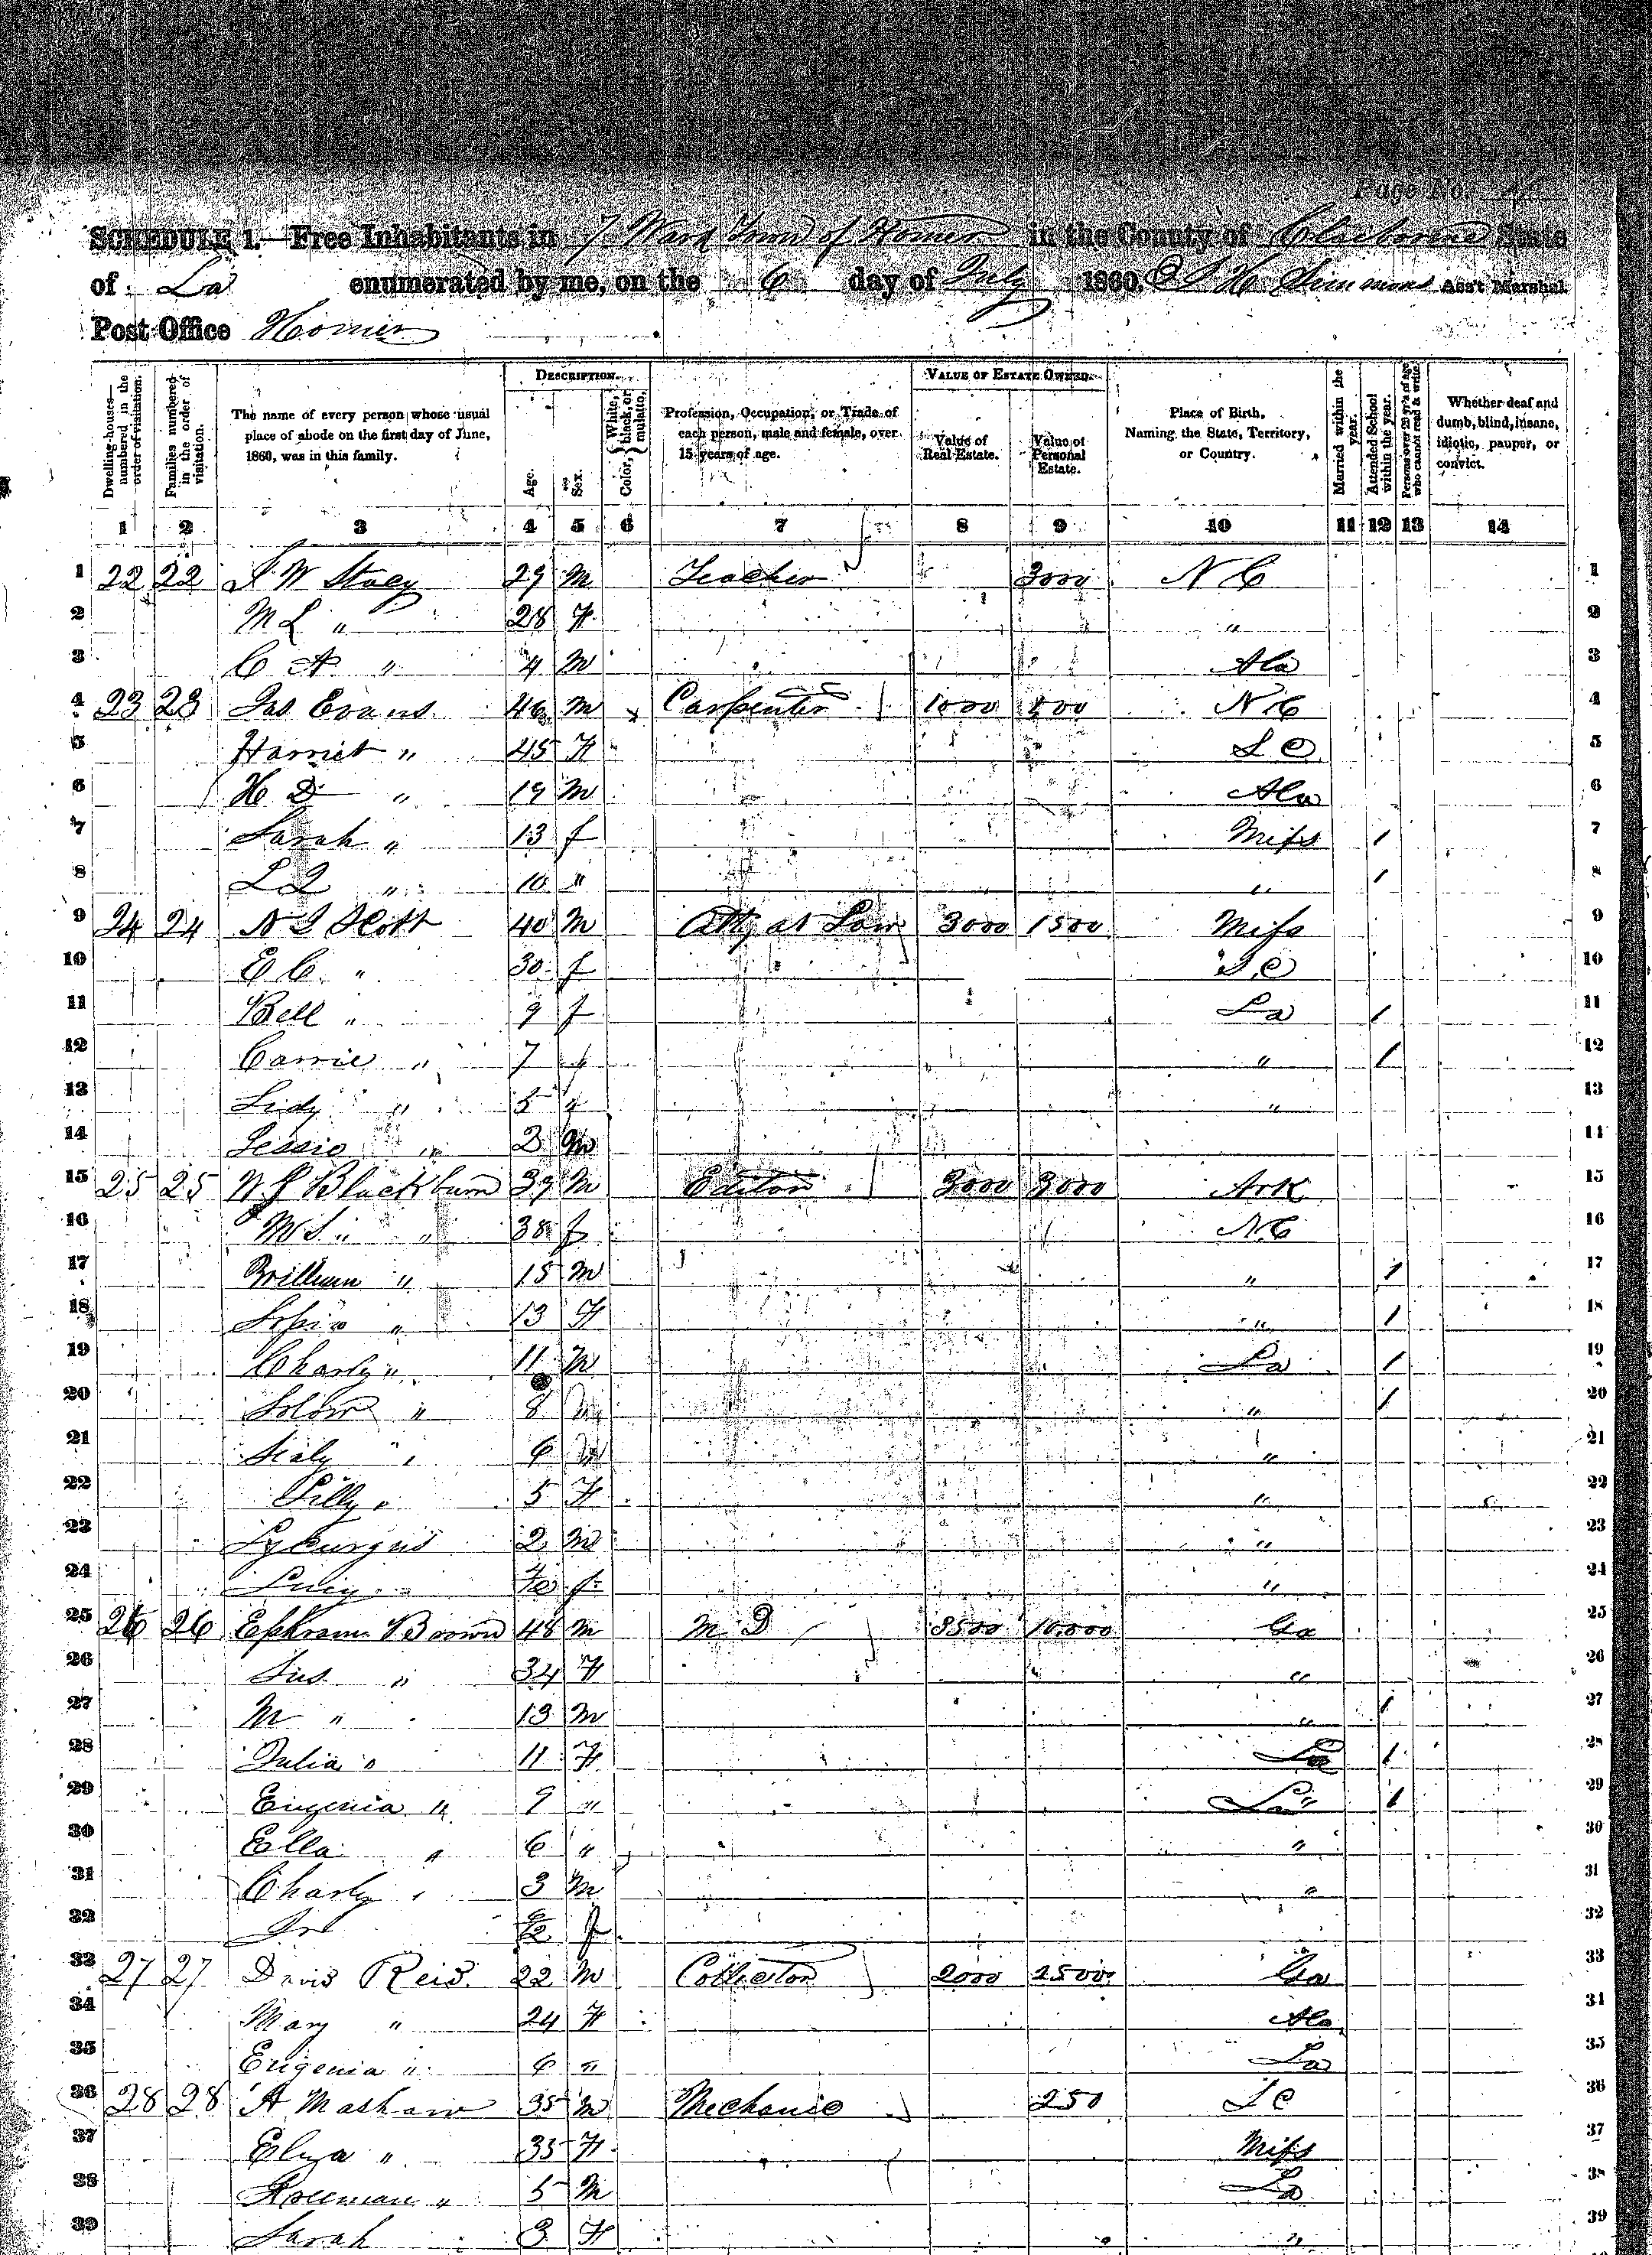 Page No.
SCHEDULE 1.—Free Inhabitants in 7 Ward Town of Homer in the County of Claiborne State
of La enumerated by me, on the 6 day of July 1860. Simmons Ass't Marshal
Post Office Homer
DESCRIPTION. VALUE OF ESTATE OWNED.
Dwelling-houses—numbered in the order of visitation. Families numbered in the order of visitation. The name of every person whose usual place of abode on the first day of June, 1860, was in this family. Age. Sex. Color, { White, black, or mulatto. Profession, Occupation, or Trade of each person, male and female, over 15 years of age. Value of Real Estate. Value of Personal Estate. Place of Birth, Naming the State, Territory, or Country. Married within the year. Attended School within the year. Persons over 20 y'rs of age who cannot read & write. Whether deaf and dumb, blind, insane, idiotic, pauper, or convict.
1 2 3 4 5 6 7 8 9 10 11 12 13 14
1 22 22 J W Stacy 29 M Teacher 3000 N C 1
2 M L " 28 F " 2
3 C A " 4 M Ala 3
4 23 23 Jas Evans 46 M Carpenter 1000 N C 4
5 Harriet " 45 F S C 5
6 H D " 19 M Ala 6
7 Sarah " 13 f Miss / 7
8 " 10 " " / 8
9 24 24 N J Scott 40 M Atty at Law 3000 1500 Miss 9
10 E C " 30 f S C 10
11 Bell " 9 f La / 11
12 Carrie " 7 f " / 12
13 Lidy " 5 f " 13
14 Jessie " 2 M 14
15 25 25 W J Blackburn 39 M Editor 3000 3000 Ark 15
16 M S " " 38 f N C 16
17 William " 15 M " / 17
18 " 13 F " / 18
19 Charly " 11 M La / 19
20 Solon " 8 M " / 20
21 " 6 M " 21
22 Lilly " 5 F " 22
23 Lycurgus 2 M " 23
24 Lucy " f " 24
25 26 26 Ephraim Brown 48 M M D 3500 10.000 Ga 25
26 " 34 F " 26
27 M " 13 M " / 27
28 Julia " 11 F La / 28
29 Eugenia " 9 " La / 29
30 Ella " 6 " " 30
31 Charly " 3 M " 31
32 f 32
33 27 27 David Reid 22 M Collector 2000 2500 Ga 33
34 Mary " 24 F Ala 34
35 Eugenia " 6 " La 35
36 28 28 A Mashaw 35 M Mechanic 250 S C 36
37 Eliza " 35 F Miss 37
38 " 5 M La 38
39 Sarah 3 F " 39